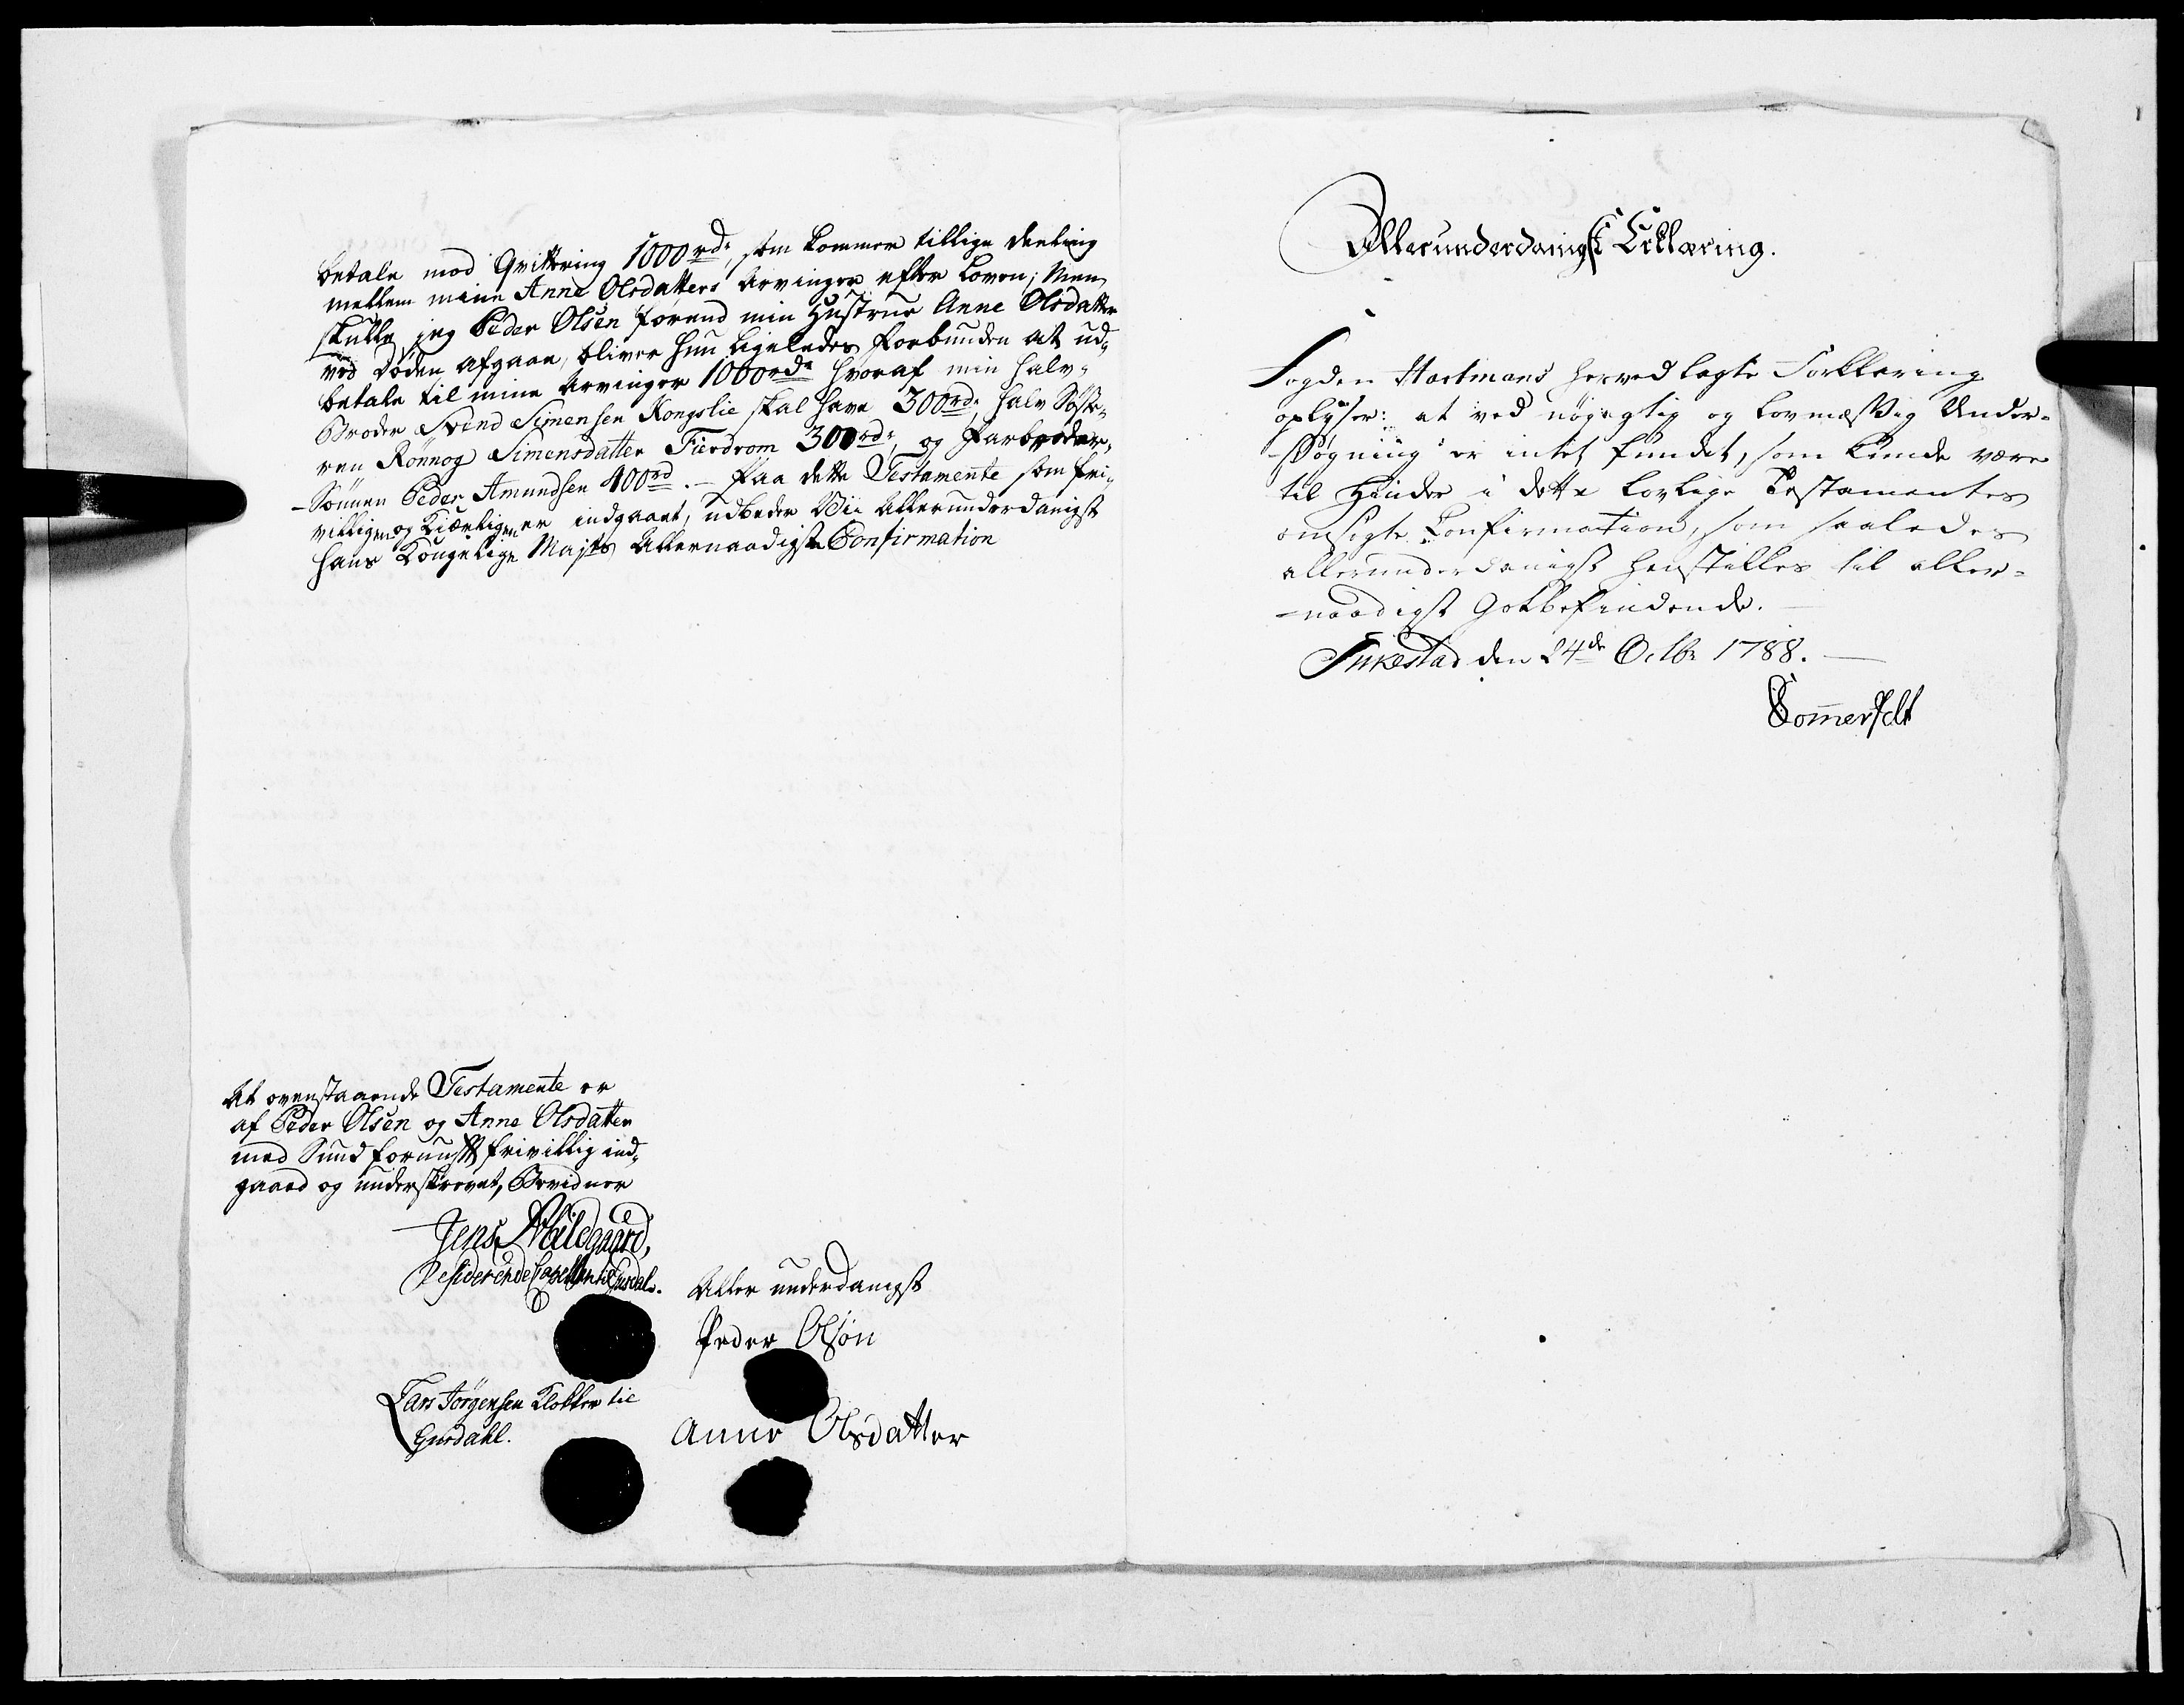 betale mod Qvittering 1000 rd:, som kommer tillige deeling
mellem mine Anne Olsdatters Arvinger efter Loven; Men
skulle jeg Peder Olsen forend min Hustrue Anne Olsdatter
ved Døden afgaae, bliver hun ligeledes forbunden at ud-
betale til mine Arvinger 1000 rd: hvoraf min halv-
Broder Svend Simensen Kongslie skal have 300 rd:, halv Søste-
ren Rönnog Simensdatter Fierdrom 300 rd:, og Farbroder-
-Sönnen Peder Amundsen 400 rd. - Paa dette Testamente som fri-
villigen og Kiærligen er indgaaet, udbeder Wii Allerunderdanigst
Hans Kongelige Majts Allernaadigste Confirmation
At ovenstaaende Testamente er
af Peder Olsen og Anne Olsdatter
med Sund fornuft frivillig ind-
gaaed og underskrevet, Bevidner
Jens Abildgaard,
Residerende Capellan til Gusdal.
Lars Jörgensen Klokker til
Gusdahl.
Aller underdanigst
Peder Olsøn
Anne Olsdatter
Allerunderdanigst Erklæring.
Fogden Hartmans hervedlagte Forklaring
oplyser: at ved nøyagtig og lovmæssig Under-
-søgning er intet fundet, som kunde være
til Hinder i dette lovlige Testamentes
ansøgte Confirmation, som saaledes
allerunderdanigst henstilles til aller-
-naadigst Gotbefindende.
den 24de Octbr 1788.
Sommerfelt